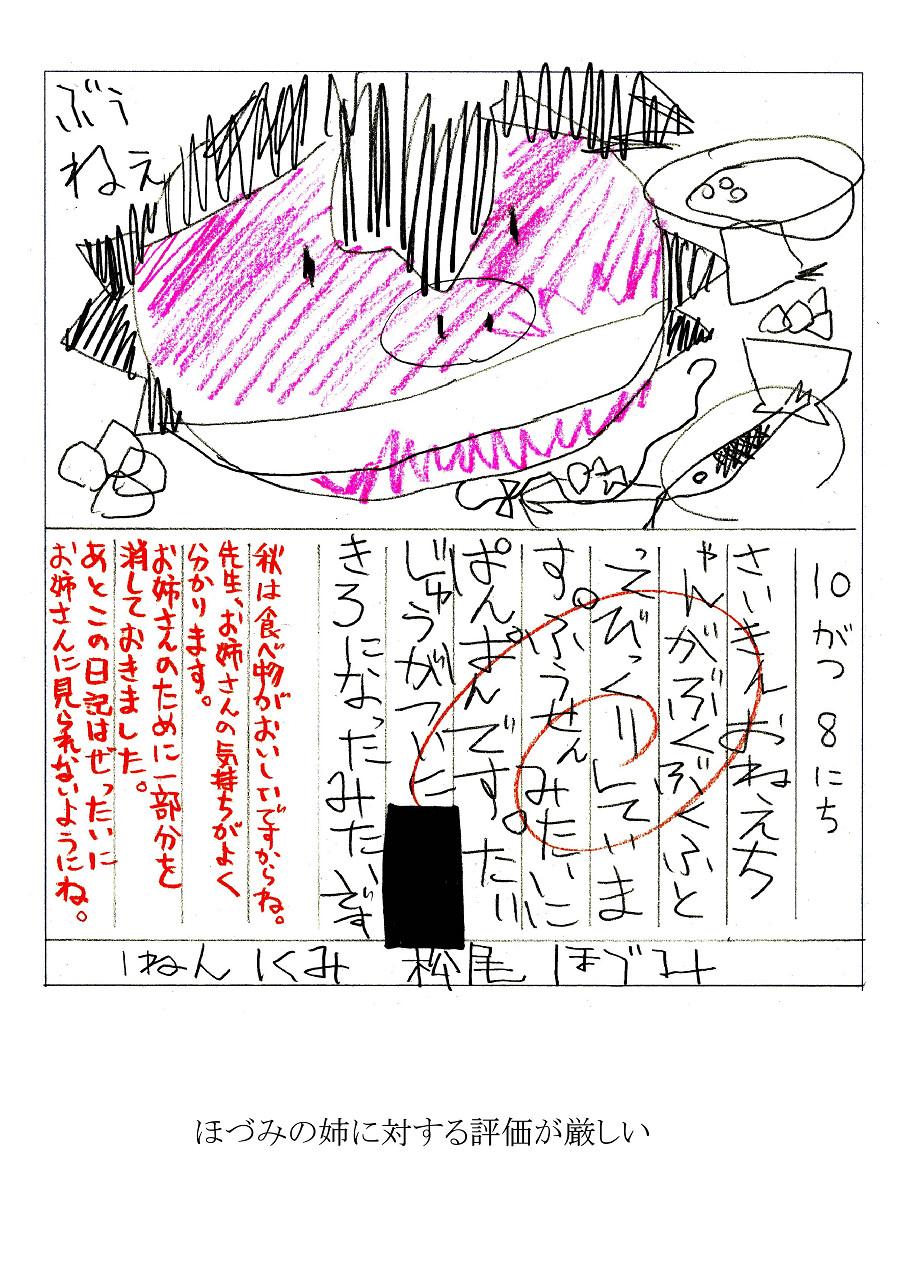 ぶう
ねえ
10がつ8にち
さいきんおねえち
ゃんがぶくぶくふと
ってびっくりしていま
す。ふうせんみたいに
ぱんぱんです。たい
じゅうがついに
きろになったみたいです
秋は食べ物がおいしいですからね。
先生、お姉さんの気持ちがよく
分かります。
お姉さんのために一部分を
消しておきました。
あとこの日記はぜったいに
お姉さんに見られないようにね。
1ねん 1くみ 松尾 ほづみ
ほづみの姉に対する評価が厳しい